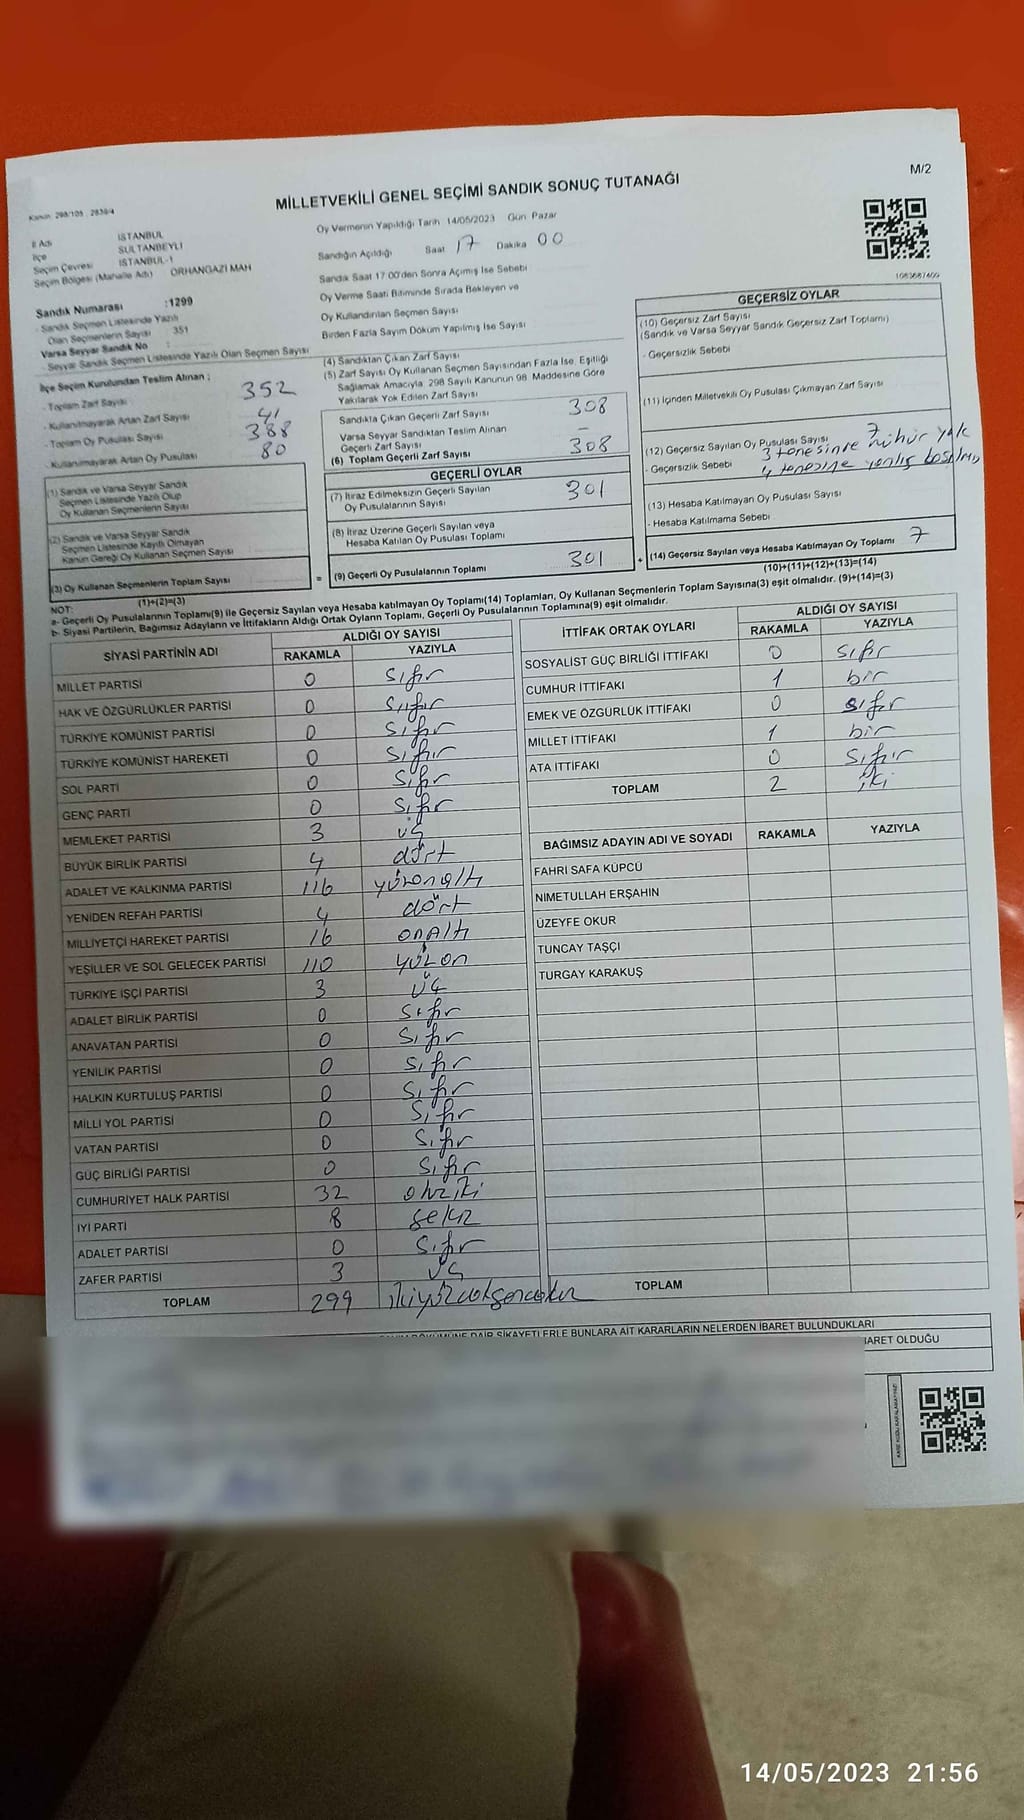 M/2
MİLLETVEKİLİ GENEL SEÇİMİ SANDIK SONUÇ TUTANAĞI
Kanun: 298/105 , 2839/4
İl Adı İSTANBUL
İlçe SULTANBEYLİ
Seçim Çevresi İSTANBUL-1
Seçim Bölgesi (Mahalle Adı) ORHANGAZİ MAH
Sandık Numarası :1299
- Sandık Seçmen Listesinde Yazılı
Olan Seçmenlerin Sayısı : 351
Varsa Seyyar Sandık No :
- Seyyar Sandık Seçmen Listesinde Yazılı Olan Seçmen Sayısı
İlçe Seçim Kurulundan Teslim Alınan :
- Toplam Zarf Sayısı 352
- Kullanılmayarak Artan Zarf Sayısı 41
- Toplam Oy Pusulası Sayısı 388
- Kullanılmayarak Artan Oy Pusulası 80
(1) Sandık ve Varsa Seyyar Sandık
Seçmen Listesinde Yazılı Olup
Oy Kullanan Seçmenlerin Sayısı
(2) Sandık ve Varsa Seyyar Sandık
Seçmen Listesinde Kayıtlı Olmayan
Kanun Gereği Oy Kullanan Seçmen Sayısı
(3) Oy Kullanan Seçmenlerin Toplam Sayısı
(1)+(2)=(3)
Oy Vermenin Yapıldığı Tarih 14/05/2023 Gün Pazar
Sandığın Açıldığı Saat 17 Dakika 00
Sandık Saat 17.00'den Sonra Açımış İse Sebebi
Oy Verme Saati Bitiminde Sırada Bekleyen ve
Oy Kullandırılan Seçmen Sayısı
Birden Fazla Sayım Döküm Yapılmış İse Sayısı
(4) Sandıktan Çıkan Zarf Sayısı
(5) Zarf Sayısı Oy Kullanan Seçmen Sayısından Fazla İse, Eşitliği
Sağlamak Amacıyla, 298 Sayılı Kanunun 98. Maddesine Göre
Yakılarak Yok Edilen Zarf Sayısı
Sandıkta Çıkan Geçerli Zarf Sayısı 308
Varsa Seyyar Sandıktan Teslim Alınan
Geçerli Zarf Sayısı -
(6) Toplam Geçerli Zarf Sayısı 308
GEÇERLİ OYLAR
(7) İtiraz Edilmeksizin Geçerli Sayılan
Oy Pusulalarının Sayısı 301
(8) İtiraz Üzerine Geçerli Sayılan veya
Hesaba Katılan Oy Pusulası Toplamı
= (9) Geçerli Oy Pusulalarının Toplamı 301 +
1083687400
GEÇERSİZ OYLAR
(10) Geçersiz Zarf Sayısı
(Sandık ve Varsa Seyyar Sandık Geçersiz Zarf Toplamı)
- Geçersizlik Sebebi
(11) İçinden Milletvekili Oy Pusulası Çıkmayan Zarf Sayısı
(12) Geçersiz Sayılan Oy Pusulası Sayısı 7
3 tanesinde mühür yok
- Geçersizlik Sebebi 4 tanesine yanlış basılmış
(13) Hesaba Katılmayan Oy Pusulası Sayısı
- Hesaba Katılmama Sebebi
(14) Geçersiz Sayılan veya Hesaba Katılmayan Oy Toplamı 7
(10)+(11)+(12)+(13)=(14)
NOT:
a- Geçerli Oy Pusulalarının Toplamı(9) ile Geçersiz Sayılan veya Hesaba katılmayan Oy Toplamı(14) Toplamları, Oy Kullanan Seçmenlerin Toplam Sayısına(3) eşit olmalıdır. (9)+(14)=(3)
b- Siyasi Partilerin, Bağımsız Adayların ve İttifakların Aldığı Ortak Oyların Toplamı, Geçerli Oy Pusulalarının Toplamına(9) eşit olmalıdır.
SİYASİ PARTİNİN ADI ALDIĞI OY SAYISI
RAKAMLA YAZIYLA
MİLLET PARTİSİ 0 Sıfır
HAK VE ÖZGÜRLÜKLER PARTİSİ 0 Sıfır
TÜRKİYE KOMÜNİST PARTİSİ 0 Sıfır
TÜRKİYE KOMÜNİST HAREKETİ 0 Sıfır
SOL PARTİ 0 Sıfır
GENÇ PARTİ 0 Sıfır
MEMLEKET PARTİSİ 3 üç
BÜYÜK BİRLİK PARTİSİ 4 dört
ADALET VE KALKINMA PARTİSİ 116 yüzonaltı
YENİDEN REFAH PARTİSİ 4 dört
MİLLİYETÇİ HAREKET PARTİSİ 16 onaltı
YEŞİLLER VE SOL GELECEK PARTİSİ 110 yüzon
TÜRKİYE İŞÇİ PARTİSİ 3 üç
ADALET BİRLİK PARTİSİ 0 Sıfır
ANAVATAN PARTİSİ 0 Sıfır
YENİLİK PARTİSİ 0 Sıfır
HALKIN KURTULUŞ PARTİSİ 0 Sıfır
MİLLİ YOL PARTİSİ 0 Sıfır
VATAN PARTİSİ 0 Sıfır
GÜÇ BİRLİĞİ PARTİSİ 0 Sıfır
CUMHURİYET HALK PARTİSİ 32 otuziki
İYİ PARTİ 8 sekiz
ADALET PARTİSİ 0 Sıfır
ZAFER PARTİSİ 3 üç
TOPLAM 299 ikiyüzdoksandokuz
İTTİFAK ORTAK OYLARI ALDIĞI OY SAYISI
RAKAMLA YAZIYLA
SOSYALİST GÜÇ BİRLİĞİ İTTİFAKI 0 Sıfır
CUMHUR İTTİFAKI 1 bir
EMEK VE ÖZGÜRLÜK İTTİFAKI 0 sıfır
MİLLET İTTİFAKI 1 bir
ATA İTTİFAKI 0 Sıfır
TOPLAM 2 iki
BAĞIMSIZ ADAYIN ADI VE SOYADI RAKAMLA YAZIYLA
FAHRİ SAFA KÜPCÜ
NİMETULLAH ERŞAHİN
ÜZEYFE OKUR
TUNCAY TAŞÇI
TURGAY KARAKUŞ
TOPLAM
DÖKÜMÜNE DAİR ŞİKAYETLERLE BUNLARA AİT KARARLARIN NELERDEN İBARET BULUNDUKLARI
İBARET OLDUĞU
14/05/2023 21:56